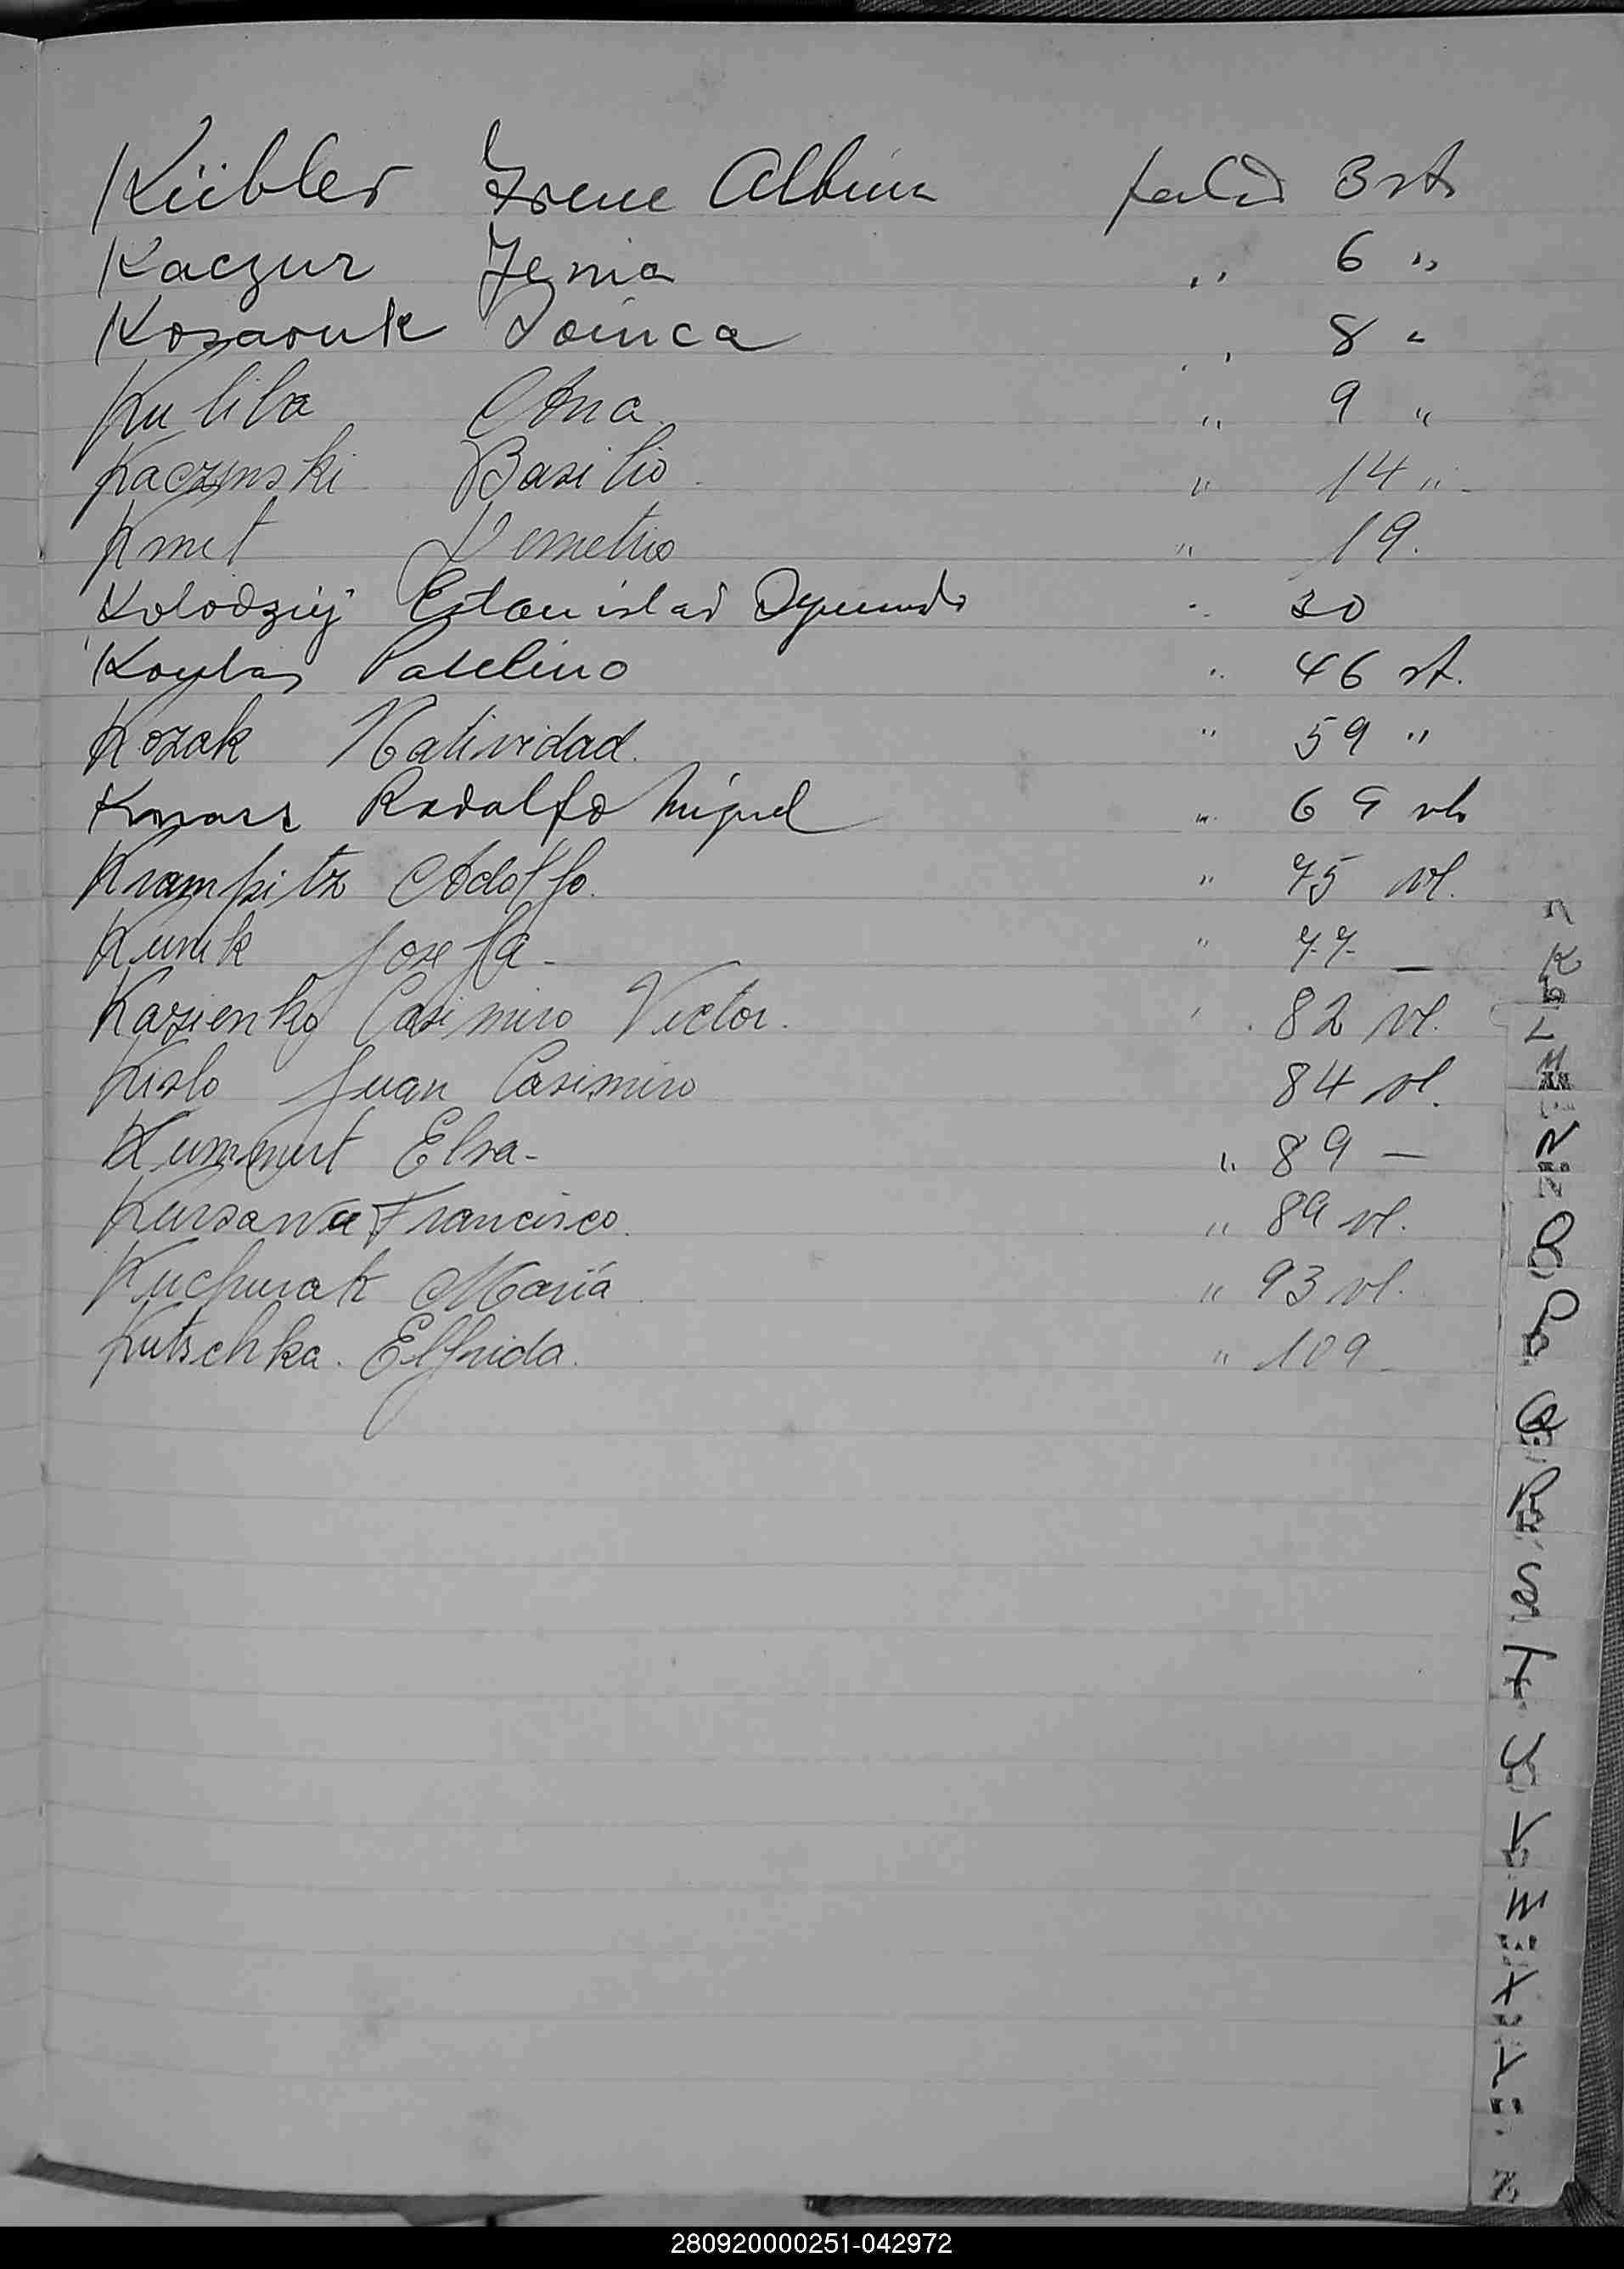 Kübler Irene Albina folio 3 vta
Kaczur Jenia " 6 "
Kosaouk Joinca " 8 "
Kuliba Ana " 9 "
Kaczynski Basilio " 14 " -
Kmet Demetrio " 19.
Kolodziej Estanislao " 30
Paselino " 46 vt.
Kozak Natividad. " 59 "
Rodolfo Miguel " 69 vta
Krampitz Adolfo. " 75 vt.
Kunik Josefa - " 77 -
Kazienko Casimiro Victor. " 82 vt.
Kislo Juan Casimiro 84 vt.
Kummert Elsa - " 89 -
Kursawa Francisco. " 89 vt.
Kuchurak María " 93 vt.
Kutschka. Elfrida. " 109 -
K
L
M
N
O
P
Q
R
S
T
U
V
W
X
Y
Z
280920000251-042972